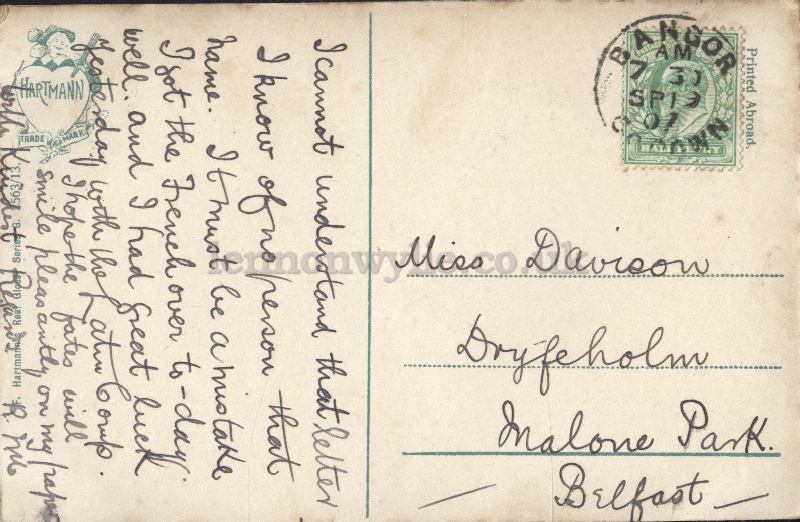 I cannot understand that letter
I know of no person that
name. It must be a mistake
I got the French over to-day.
well. and I had great luck
yesterday with the Latin Comp.
I hope the fates will
smile pleasantly on my paper
with Kindest Regards
HARTMANN
TRADE MARK
Hartmann's Real Glossy Series G. 1563/13.
BANGOR
AM
7 30
SP 19
07
CO. DOWN
HALFPENNY
Printed Abroad.
Miss Davison
Dryfeholm
Malone Park.
Belfast
lennonwylie.co.uk